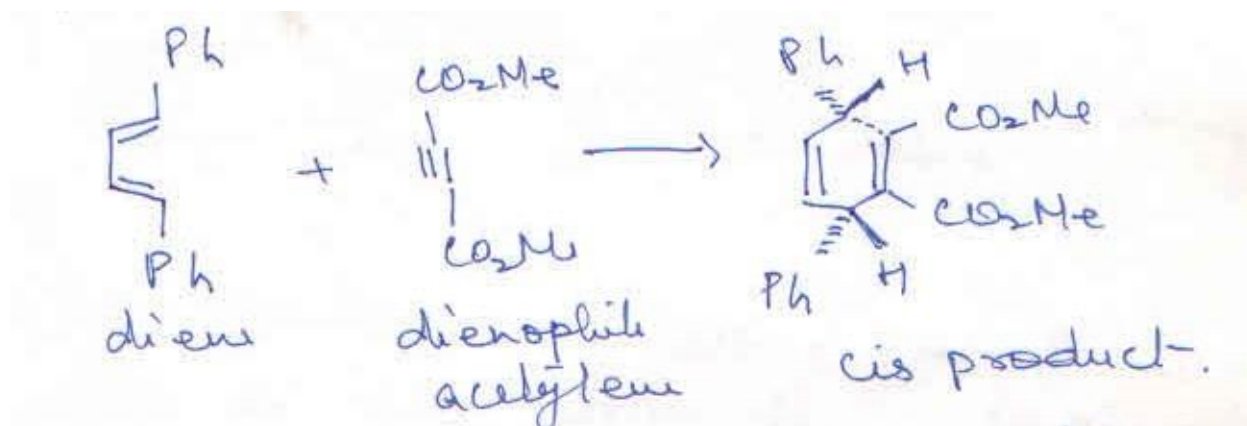 Ph
CO₂Me
+
Ph
CO₂Me
diene
dienophile
acetylene
Ph H
CO₂Me
CO₂Me
Ph H
cis product.